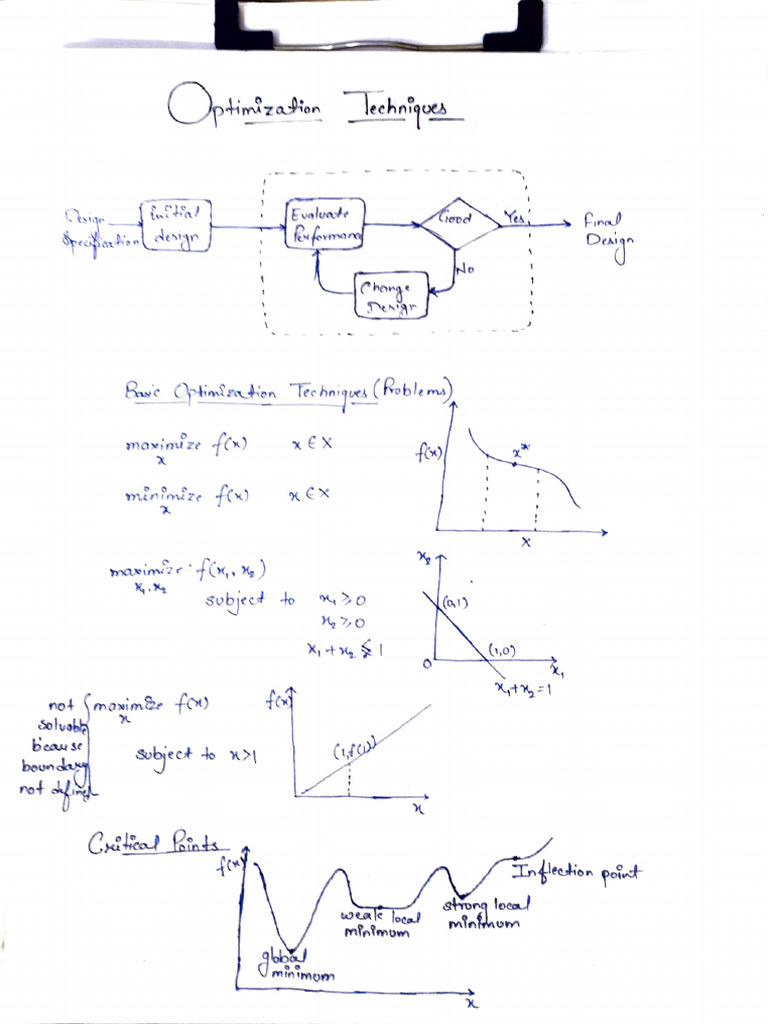 Optimization Techniques
Design
Specification
Initial
design
Evaluate
Performanc
Good
Yes
Final
Design
No
Change
Design
Basic Optimization Techniques (Problems)
maximize f(x) x ∈ X
x
minimize f(x) x ∈ X
x
f(x)
x*
X
maximize f(x₁, x₂)
x₁, x₂
subject to x₁ ≥ 0
x₂ ≥ 0
x₁ + x₂ ≤ 1
x₂
(0,1)
(1,0)
0
x₁
x₁+x₂=1
not
solvable
b'cause
boundary
not defined
maximize f(x)
x
subject to x>1
f(x)
(1,f(1))
x
Critical Points
f(x)
global
minimum
weak local
minimum
strong local
minimum
Inflection point
x